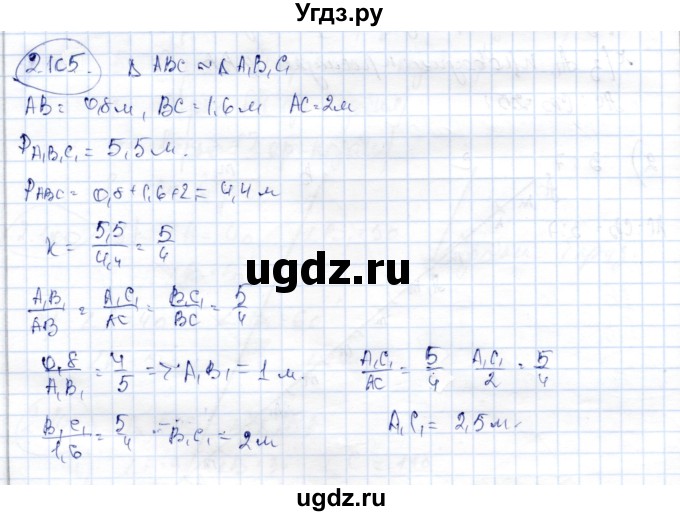 Угдз.ру
2105. Δ ABC ∾ Δ A₁B₁C₁
AB = 0,8м, BC = 1,6м AC = 2м
P A₁B₁C₁ = 5,5м.
P ABC = 0,8 + 1,6 + 2 = 4,4 м
k = 5,5/4,4 = 5/4
ugdz.ru
A₁B₁/AB = A₁C₁/AC = B₁C₁/BC = 5/4
0,8/A₁B₁ = 4/5 => A₁B₁ = 1 м. A₁C₁/AC = 5/4 A₁C₁/2 = 5/4
B₁C₁/1,6 = 5/4 => B₁C₁ = 2м A₁C₁ = 2,5м.
ugdz.ru